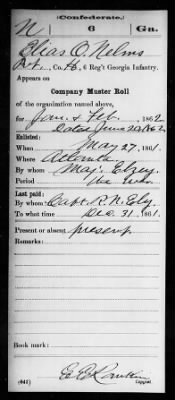 (Confederate.)
N 6 Ga.
Elias O. Nelms
Pvt., Co. H, 6 Reg't Georgia Infantry.
Appears on
Company Muster Roll
of the organization named above,
for Jan. & Feb. 1862
Dated June 20, 1862
Enlisted:
When May 27, 1861.
Where Atlanta
By whom Maj. Elzey
Period the war
Last paid:
By whom Capt. R. N. Ely
To what time Dec. 31, 1861.
Present or absent present
Remarks:
Book mark:
(641) Copyist.